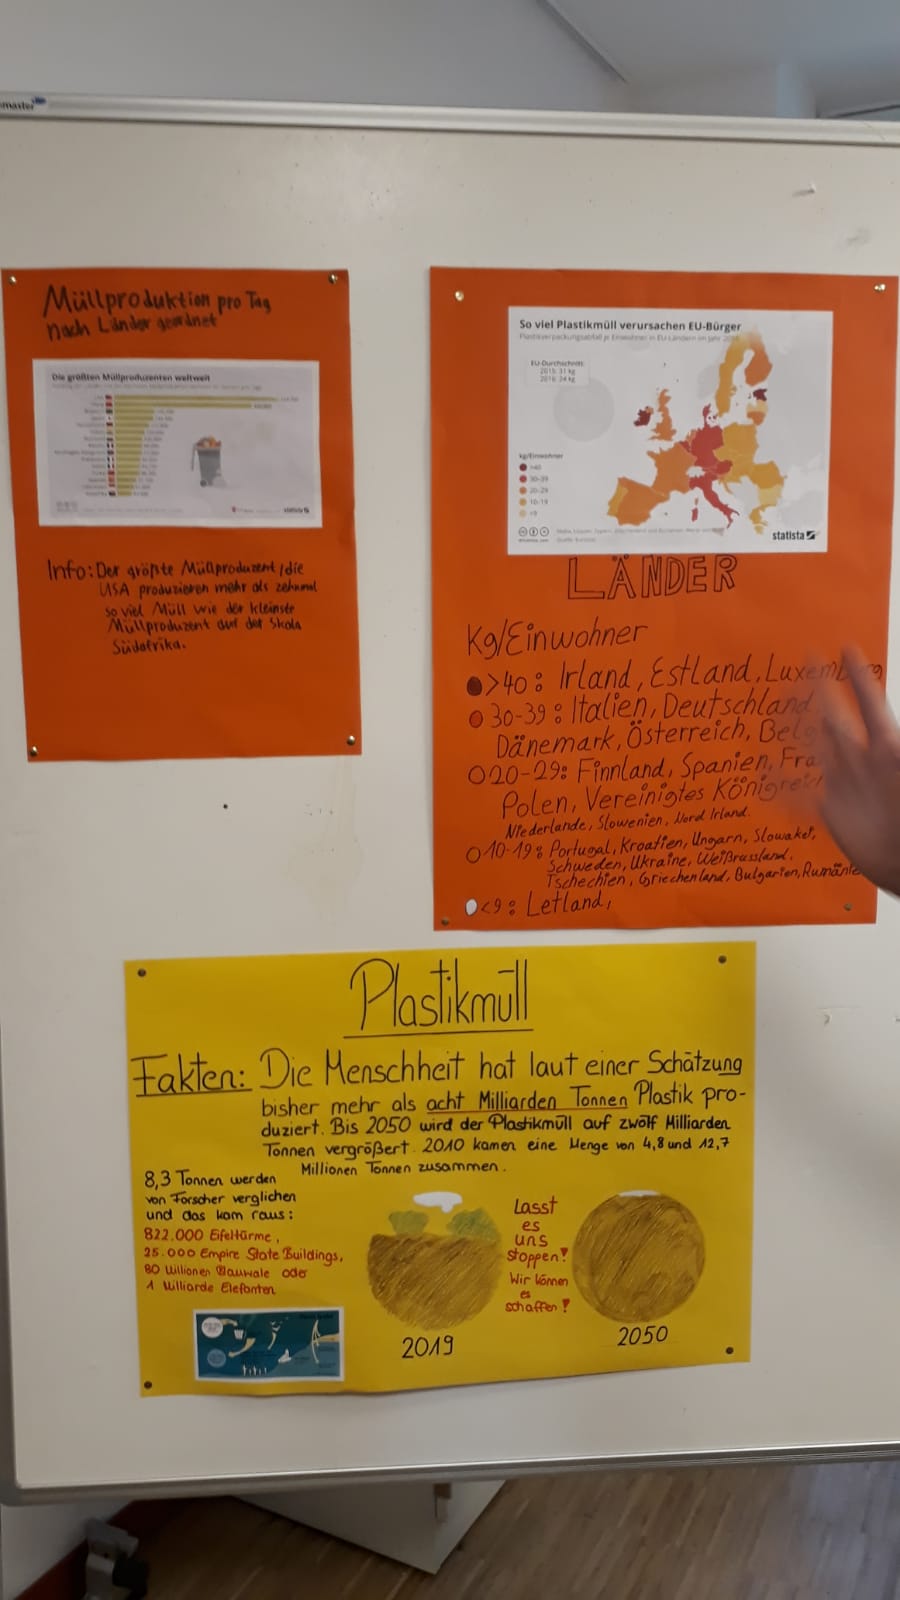 Müllproduktion pro Tag
nach Länder geordnet
Die größten Müllproduzenten weltweit
statista
Info: Der größte Müllproduzent, die
USA produzieren mehr als zehnmal
so viel Müll wie der kleinste
Müllproduzent auf der Skala
Südafrika.
So viel Plastikmüll verursachen EU-Bürger
Plastikverpackungsabfall je Einwohner in EU-Ländern im Jahr
EU-Durchschnitt:
2015: 31 kg
2016: 24 kg
kg/Einwohner
>40
30-39
20-29
10-19
<9
statista
LÄNDER
Kg/Einwohner
>40: Irland, Estland, Luxemburg
30-39: Italien, Deutschland,
Dänemark, Österreich, Belg
20-29: Finnland, Spanien, Fra
Polen, Vereinigtes Königreich
Niederlande, Slowenien, Nord Irland.
10-19: Portugal, Kroatien, Ungarn, Slowakei,
Schweden, Ukraine, Weißrussland,
Tschechien, Griechenland, Bulgarien, Rumänie
<9: Letland,
Plastikmüll
Fakten: Die Menschheit hat laut einer Schätzung
bisher mehr als acht Milliarden Tonnen Plastik pro-
duziert. Bis 2050 wird der Plastikmüll auf zwölf Milliarden
Tonnen vergrößert. 2010 kamen eine Menge von 4,8 und 12,7
Millionen Tonnen zusammen.
8,3 Tonnen werden
von Forscher verglichen
und das kam raus:
822.000 Eifeltürme,
25.000 Empire State Buildings,
80 Millionen Blauwale oder
1 Milliarde Elefanten
Lasst
es
uns
stoppen!
Wir können
es
schaffen!
2019
2050